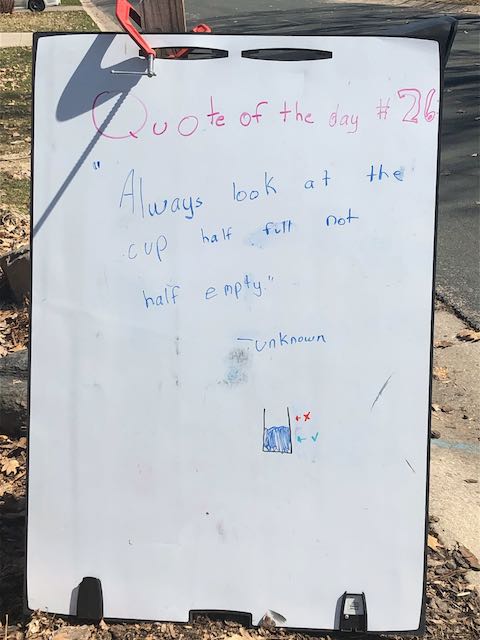 Quote of the day #26
"Always look at the
cup half full not
half empty."
-unknown